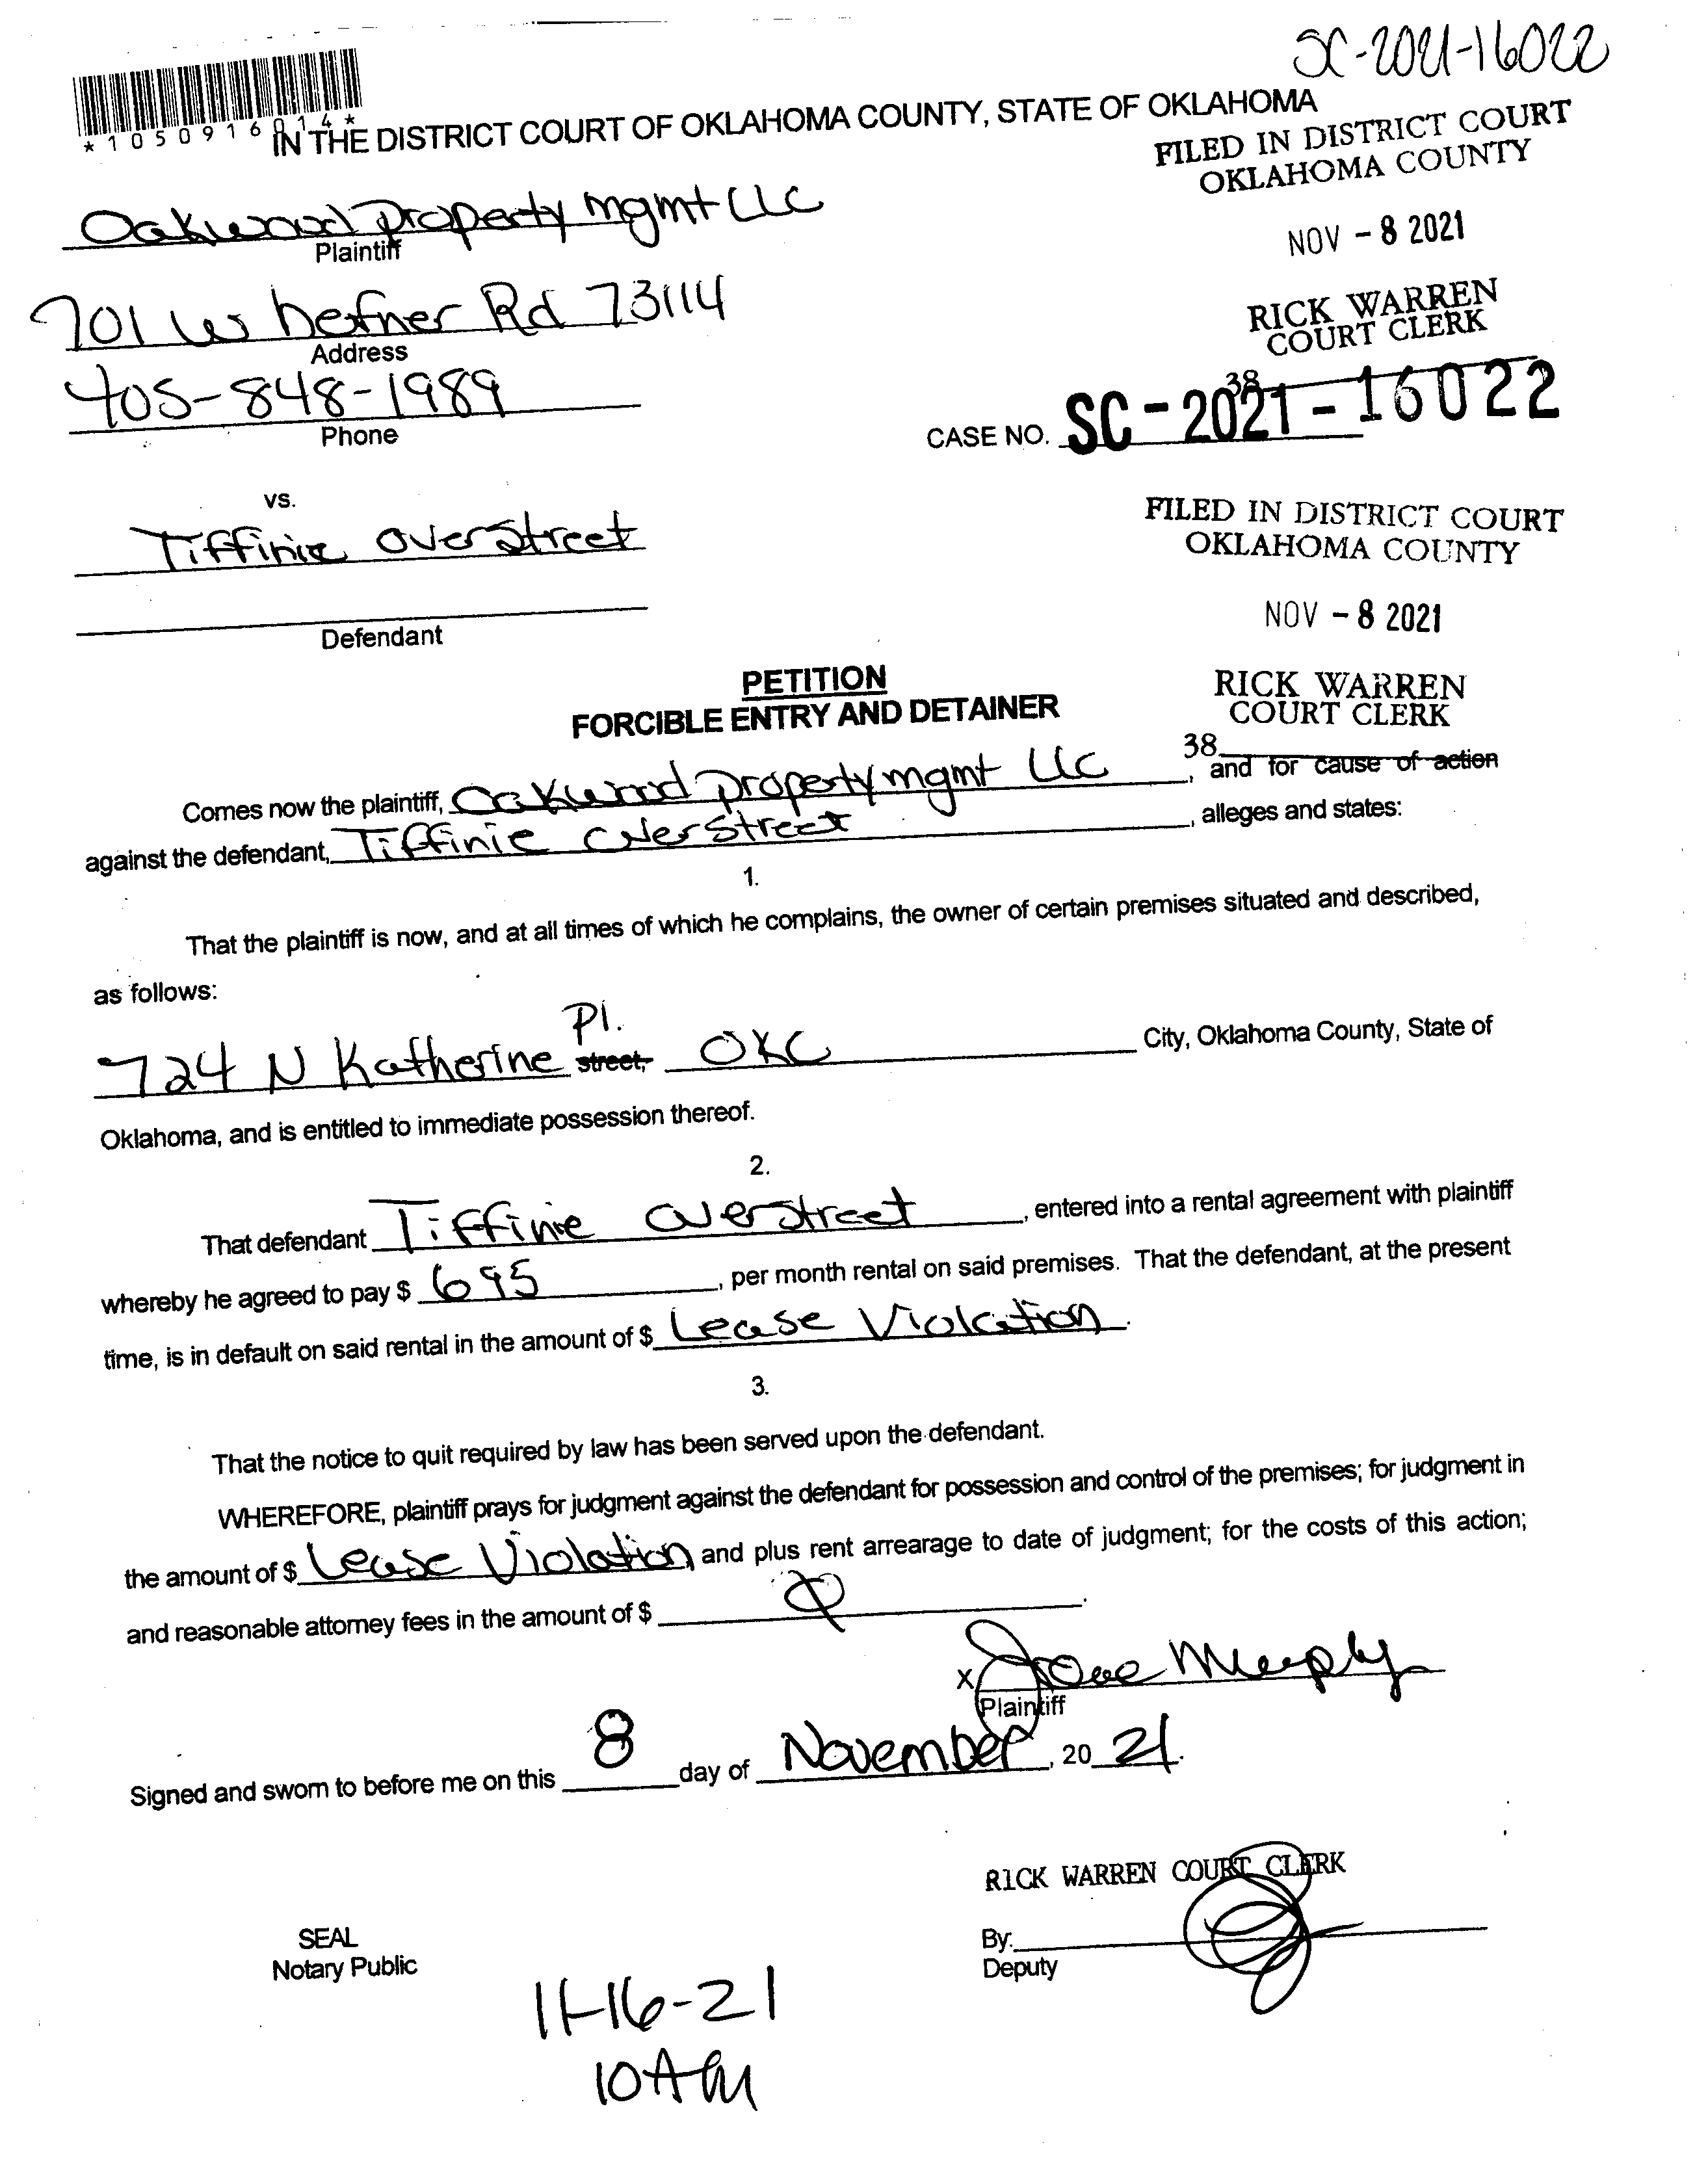 SC-2021-16022
*1050916014*
IN THE DISTRICT COURT OF OKLAHOMA COUNTY, STATE OF OKLAHOMA
FILED IN DISTRICT COURT
OKLAHOMA COUNTY
Oakwood Property mgmt LLC
Plaintiff
NOV - 8 2021
701 W hefner Rd 73114
Address
RICK WARREN
COURT CLERK
405-848-1989
Phone
38
CASE NO. SC-2021-16022
vs.
Tiffinie Overstreet
Defendant
FILED IN DISTRICT COURT
OKLAHOMA COUNTY
NOV - 8 2021
RICK WARREN
COURT CLERK
38
PETITION
FORCIBLE ENTRY AND DETAINER
Comes now the plaintiff, Oakwood property mgmt LLC, and for cause of action
against the defendant, Tiffinie Overstreet, alleges and states:
1.
That the plaintiff is now, and at all times of which he complains, the owner of certain premises situated and described,
as follows:
Pl.
724 N Katherine street, OKC City, Oklahoma County, State of
Oklahoma, and is entitled to immediate possession thereof.
2.
That defendant Tiffinie Overstreet, entered into a rental agreement with plaintiff
whereby he agreed to pay $ 695, per month rental on said premises. That the defendant, at the present
time, is in default on said rental in the amount of $ Lease Violation.
3.
That the notice to quit required by law has been served upon the defendant.
WHEREFORE, plaintiff prays for judgment against the defendant for possession and control of the premises; for judgment in
the amount of $ Lease Violation, and plus rent arrearage to date of judgment; for the costs of this action;
and reasonable attorney fees in the amount of $ Ø.
X Murphy
Plaintiff
Signed and sworn to before me on this 8 day of November, 20 21.
RICK WARREN COURT CLERK
SEAL
Notary Public
By:
Deputy
11-16-21
10 AM